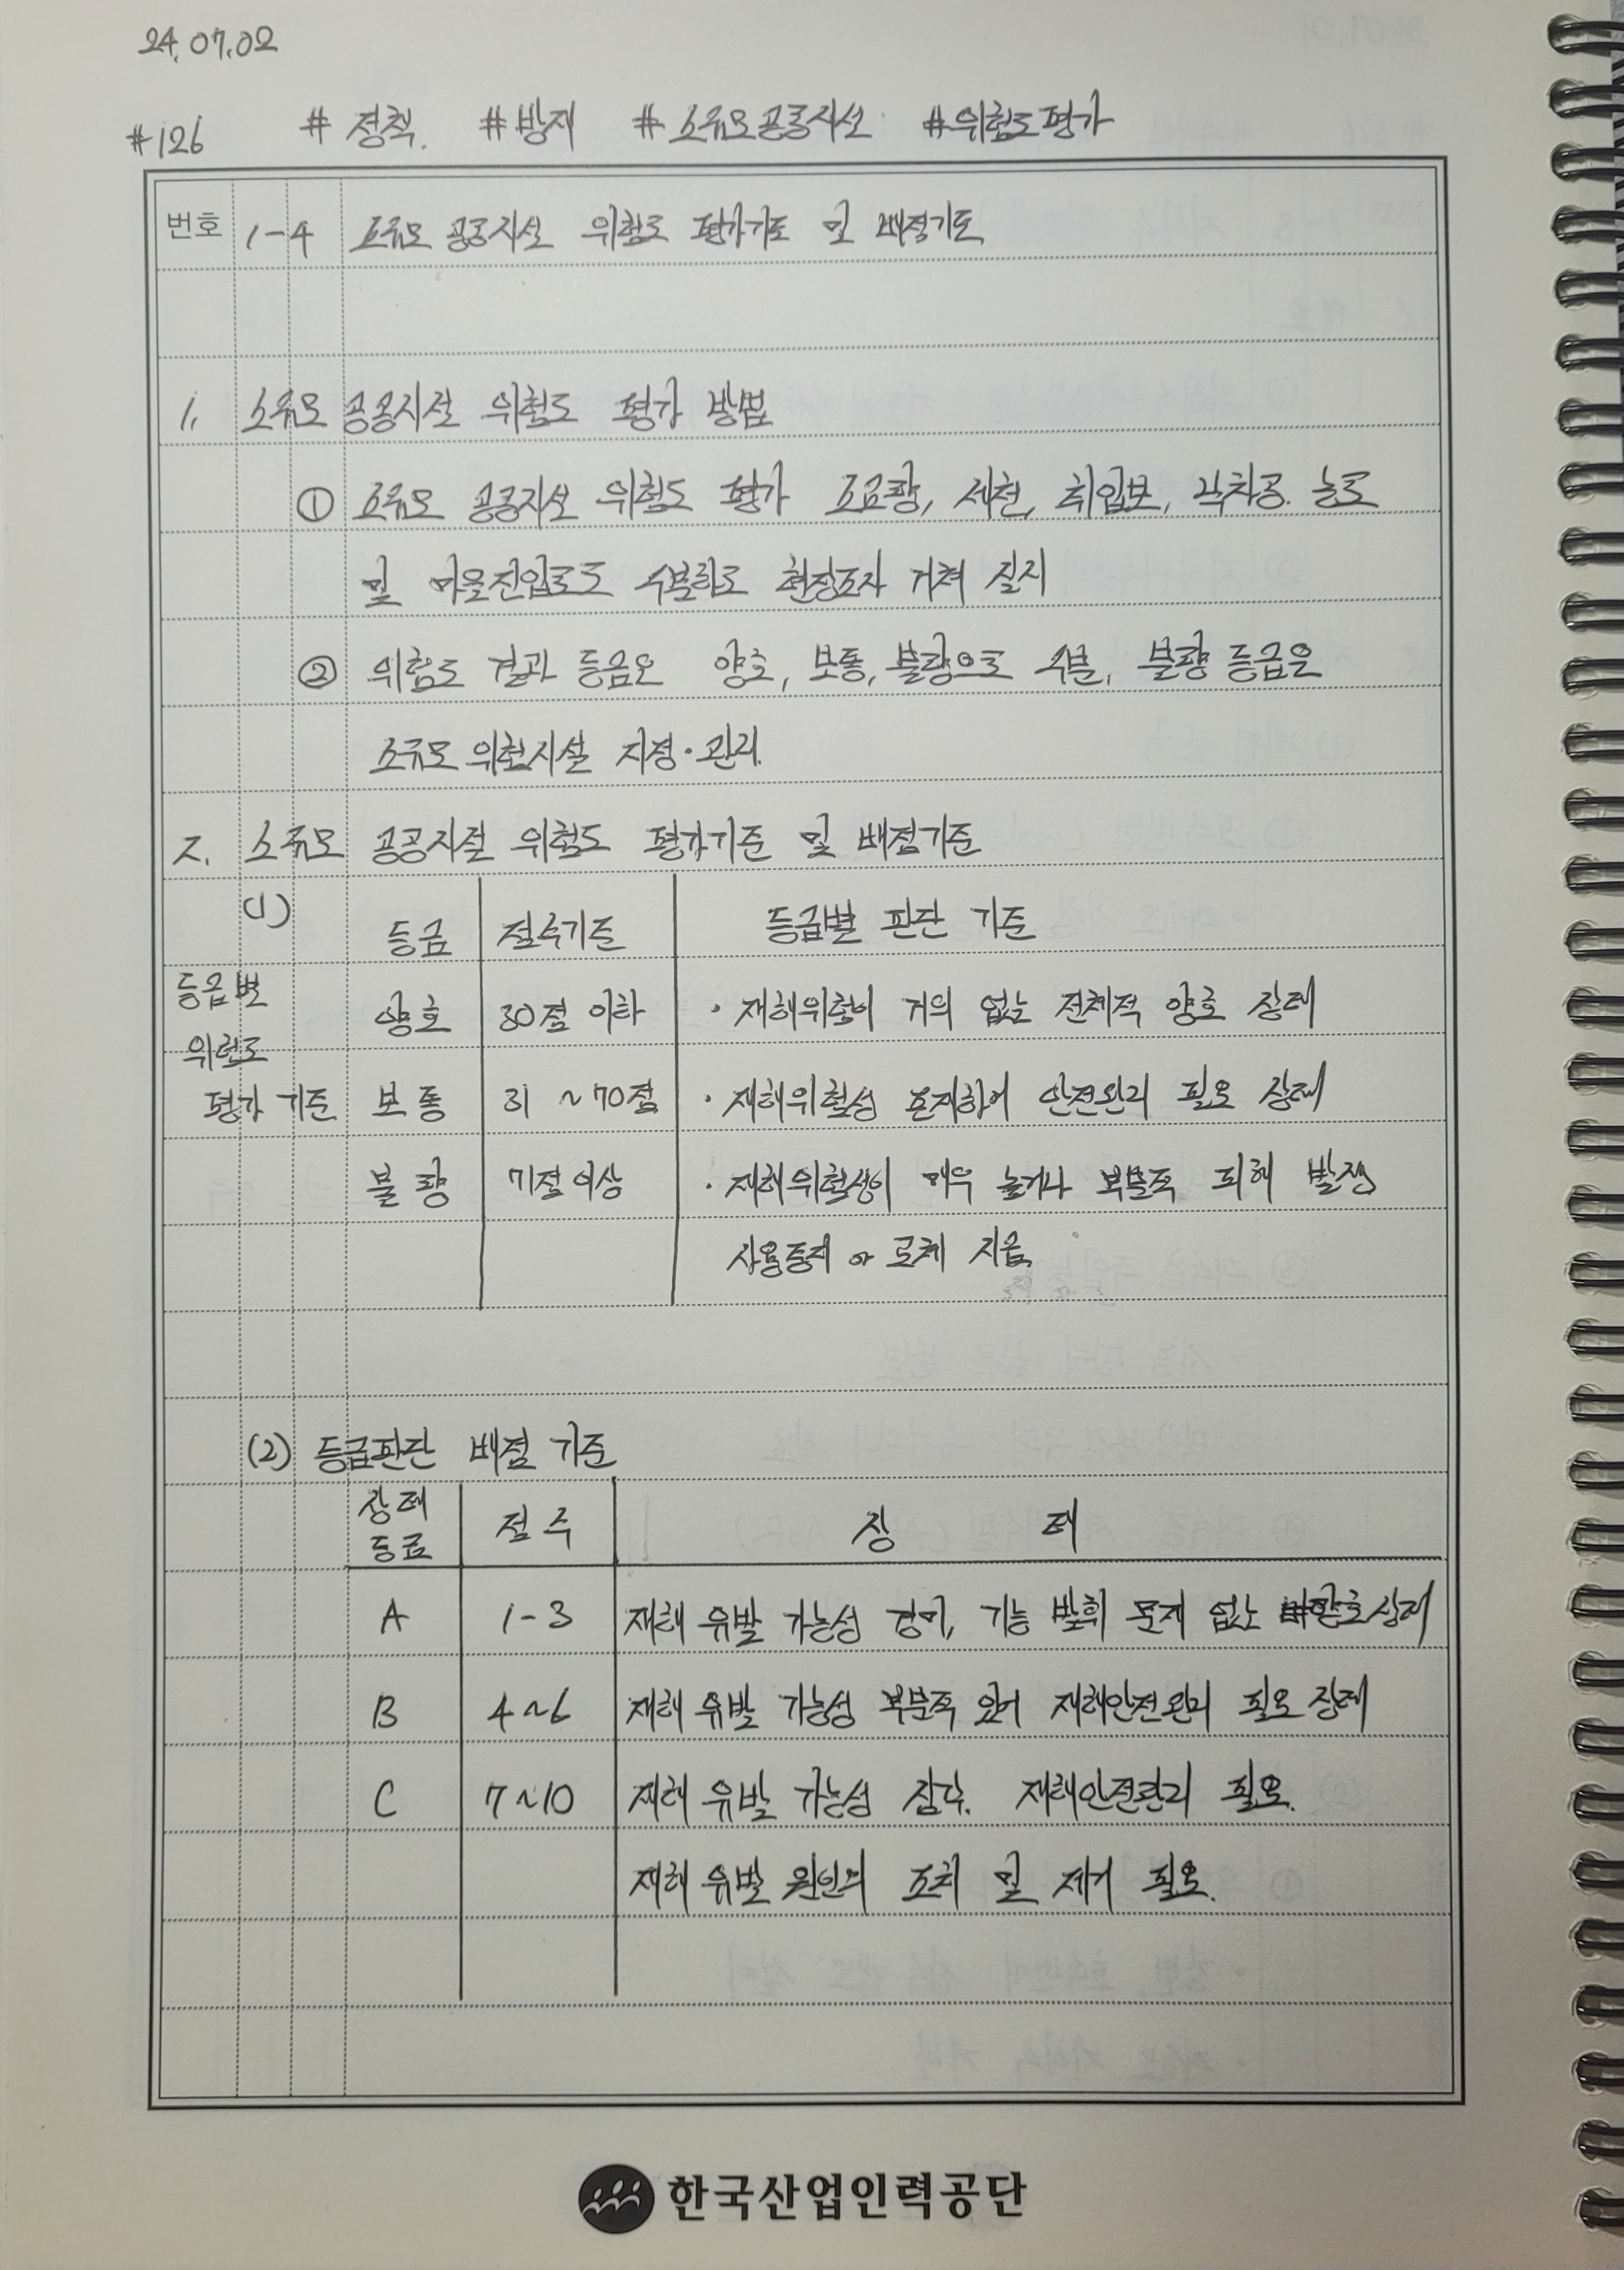 24.07.02
#126 #정책. #방재 #소규모공공시설 #위험도평가
번호 1-4 소규모 공공시설 위험도 평가기준 및 배점기준
1. 소규모 공공시설 위험도 평가 방법
① 소규모 공공시설 위험도 평가 소교량, 세천, 취입보, 낙차공. 농로
및 마을진입로로 구분하고 현장조사 거쳐 실시
② 위험도 결과 등급은 양호, 보통, 불량으로 구분, 불량 등급은
소규모 위험시설 지정·관리.
2. 소규모 공공시설 위험도 평가기준 및 배점기준
(1) 등급별 위험도 평가 기준
등급 점수기준 등급별 판단 기준
양호 30점 이하 · 재해위험이 거의 없는 전체적 양호 상태
보통 31 ~70점 · 재해위험성 존재하여 안전관리 필요 상태
불량 71점 이상 · 재해위험성이 매우 높거나 부분적 피해 발생
사용통제 or 교체 시급
(2) 등급판단 배점 기준
상태등급 점수 상태
A 1-3 재해 유발 가능성 경미, 기능 발휘 문제 없는 양호상태
B 4~6 재해 유발 가능성 부분적 있어 재해안전관리 필요 상태
C 7~10 재해 유발 가능성 심각. 재해안전관리 필요.
재해 유발 원인의 조치 및 제거 필요.
한국산업인력공단